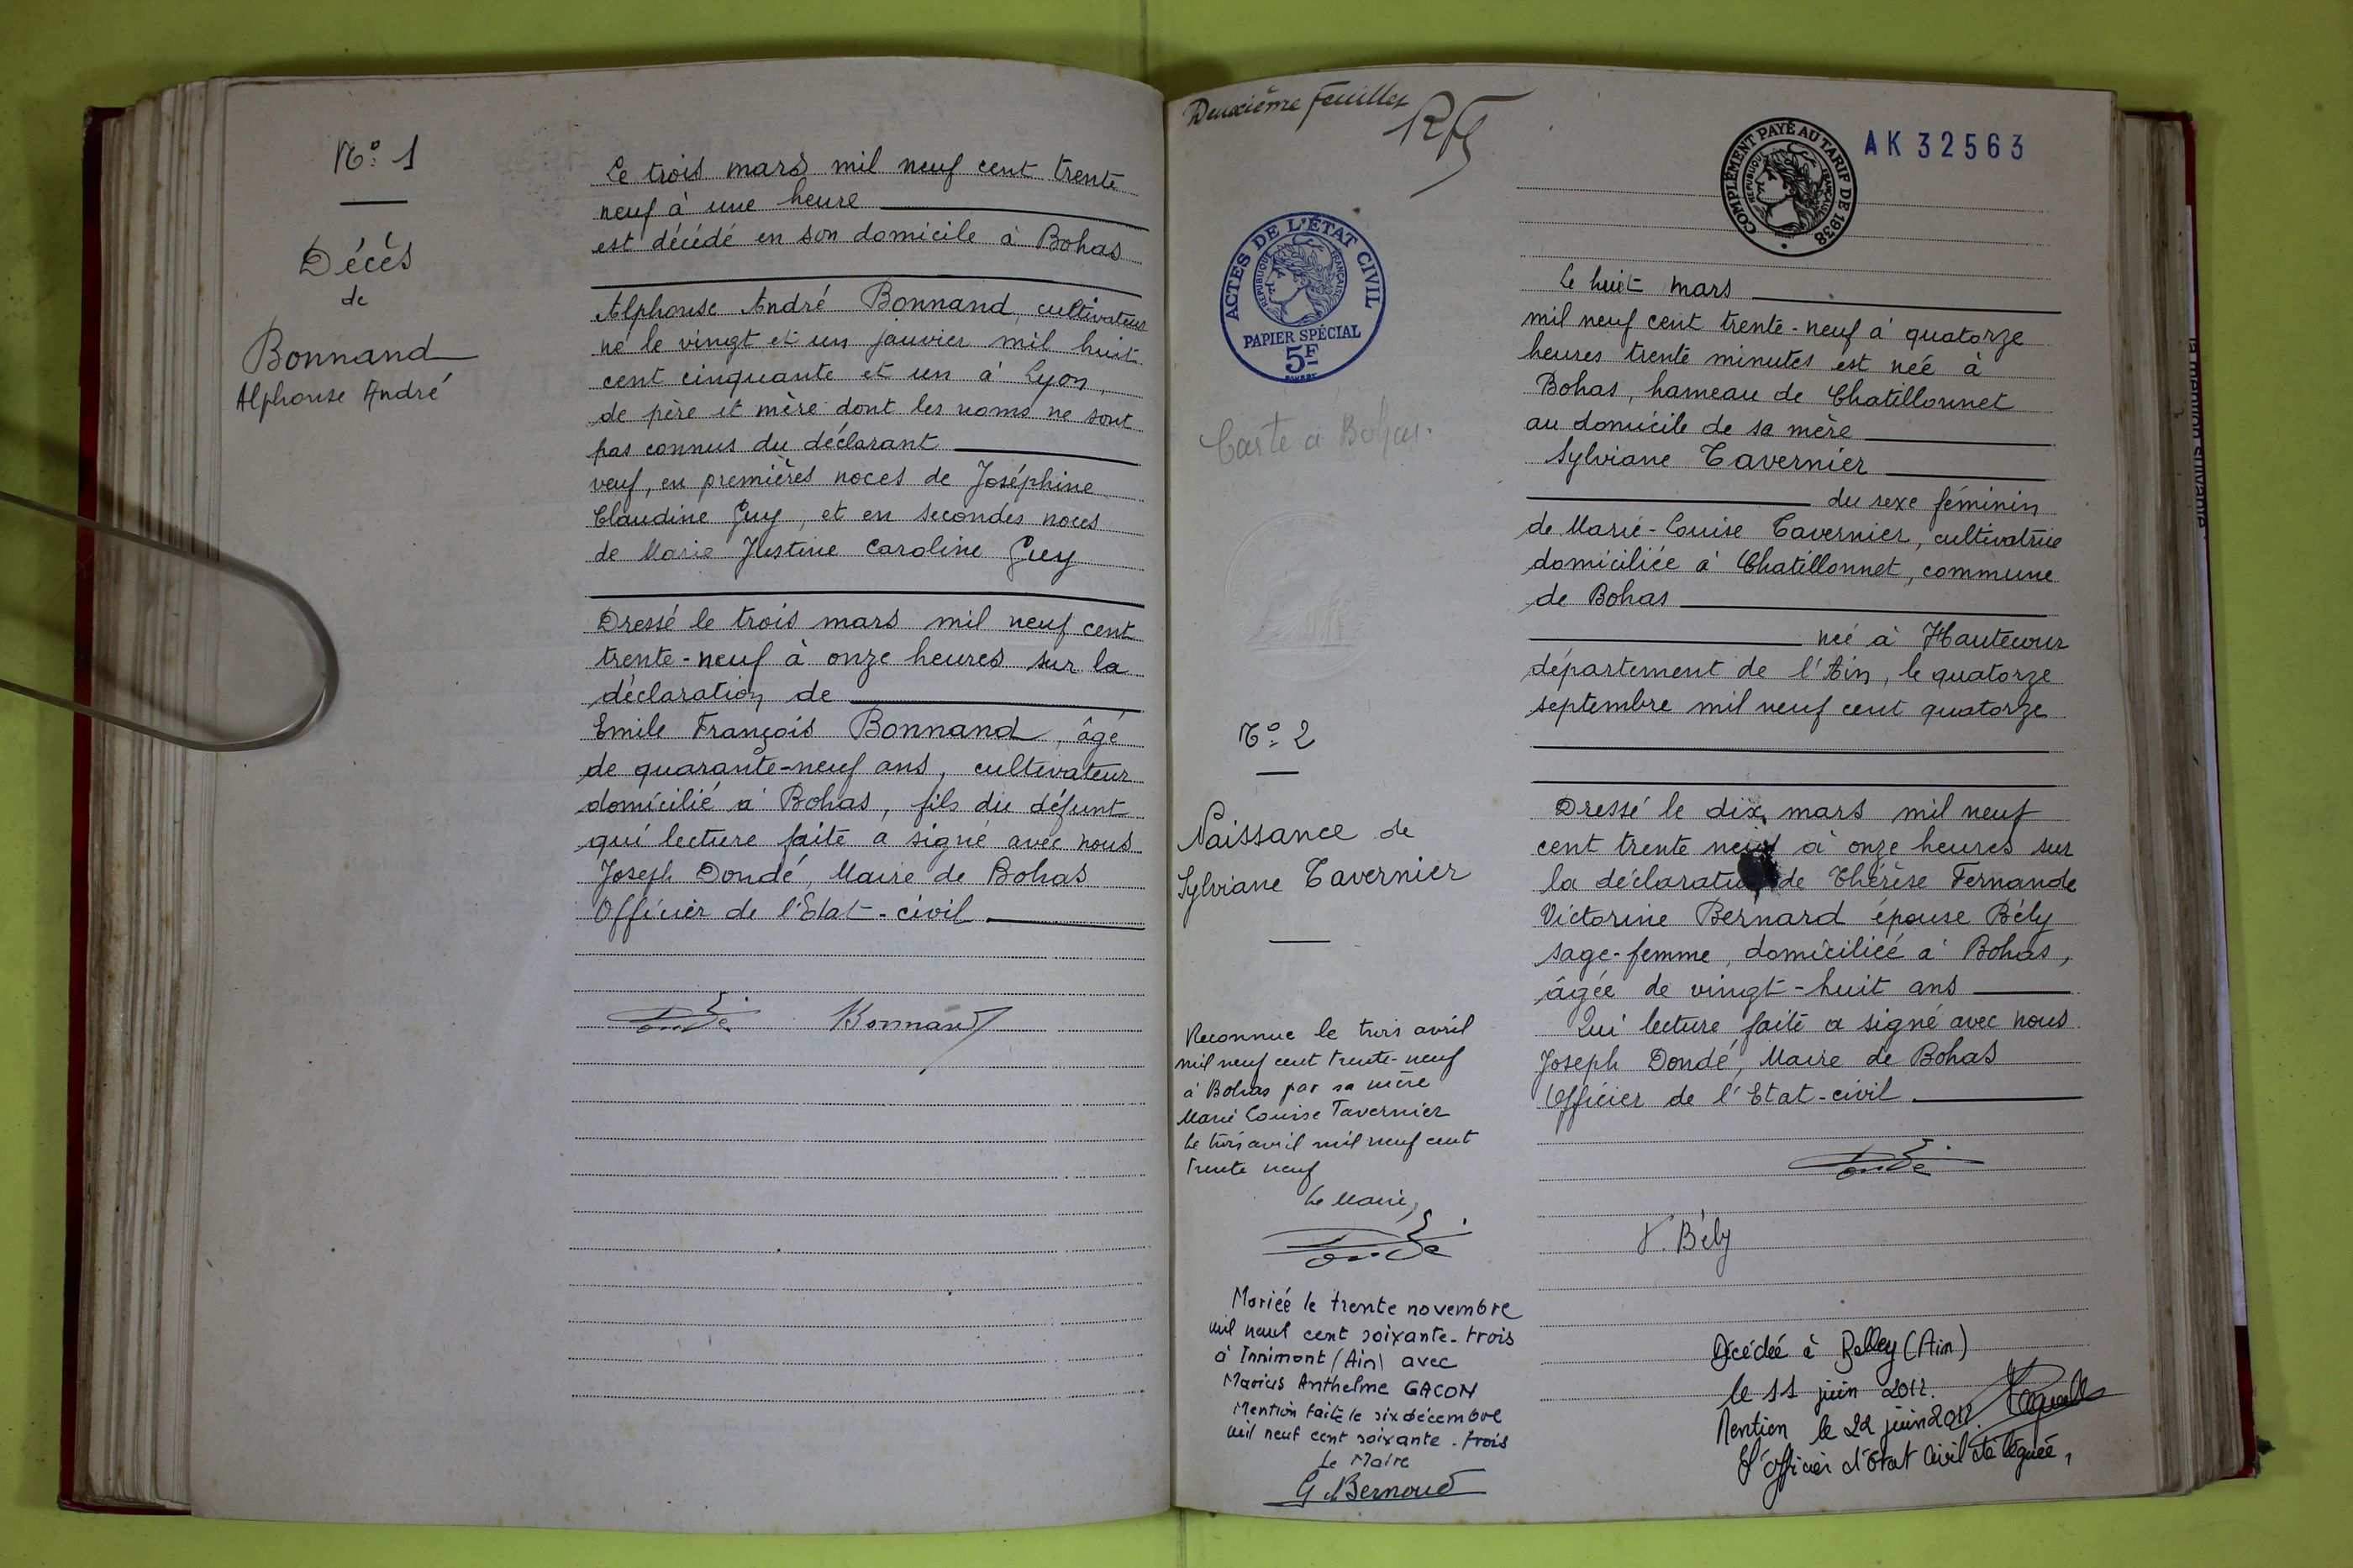 N° 1
Décès
de
Bonnand
Alphonse André
Le trois mars mil neuf cent trente
neuf à une heure
est décédé en son domicile à Bohas
Alphonse André Bonnand, cultivateur
né le vingt et un janvier mil huit
cent cinquante et un à Lyon,
de père et mère dont les noms ne sont
pas connus du déclarant
veuf, en premières noces de Joséphine
Claudine Guy, et en secondes noces
de Marie Justine Caroline Guy
Dressé le trois mars mil neuf cent
trente-neuf à onze heures sur la
déclaration de
Emile François Bonnand, âgé
de quarante-neuf ans, cultivateur
domicilié à Bohas, fils du défunt
qui lecture faite a signé avec nous
Joseph Dondé, Maire de Bohas
Officier de l'Etat-civil
Dondé Bonnand
Deuxième feuillet
ACTES DE L'ÉTAT CIVIL
RÉPUBLIQUE FRANÇAISE
PAPIER SPÉCIAL
5F
Carte à Bohas.
N° 2
Naissance de
Sylviane Tavernier
Reconnue le trois avril
mil neuf cent trente-neuf
à Bohas par sa mère
Marie Louise Tavernier
Le trois avril mil neuf cent
trente neuf
Le Maire,
Dondé
Mariée le trente novembre
mil neuf cent soixante-trois
à Innimont (Ain) avec
Marius Anthelme GACON
Mention faite le six décembre
mil neuf cent soixante-trois
Le Maire
G. Bernoud
COMPLÉMENT PAYÉ AU TARIF DE 1938
RÉPUBLIQUE FRANÇAISE
AK 32563
Le huit mars
mil neuf cent trente-neuf à quatorze
heures trente minutes est née à
Bohas, hameau de Chatillonnet
au domicile de sa mère
Sylviane Tavernier
du sexe féminin
de Marie-Louise Tavernier, cultivatrice
domiciliée à Chatillonnet, commune
de Bohas
née à Hautecour
département de l'Ain, le quatorze
septembre mil neuf cent quatorze
Dressé le dix mars mil neuf
cent trente neuf à onze heures sur
la déclaration de Thérèse Fernande
Victorine Bernard épouse Bély
sage-femme, domiciliée à Bohas,
âgée de vingt-huit ans
Qui lecture faite a signé avec nous
Joseph Dondé, Maire de Bohas
Officier de l'Etat-civil
Dondé
V. Bély
Décédée à Belley (Ain)
le 11 juin 2012.
Mention le 22 juin 2012.
L'officier d'état civil délégué,
la mention suivante